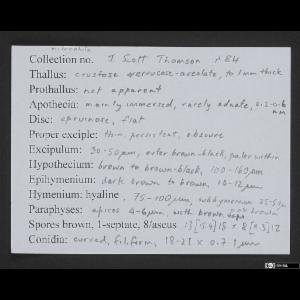 microphila
Collection no. J. Scott Thomson # 84
Thallus: crustose verrucose-areolate, to 1 mm thick
Prothallus: not apparent
Apothecia: mainly immersed, rarely adnate, 0.2-0.6 mm
Disc: epruinose, flat
Proper exciple: thin, persistent, obscure
Excipulum: 30-50µm, outer brown-black, paler within
Hypothecium: brown to brown-black, 100-160µm
Epihymenium: dark brown to brown, 10-12µm
Hymenium: hyaline, 75-100µm, subhymenium 35-50µm
pale brown
Paraphyses: apices 4-6µm, with brown caps
Spores brown, 1-septate, 8/ascus 13[15.4]18 × 8[9.3]12
Conidia: curved, filiform, 18-21 × 0.7-1µm